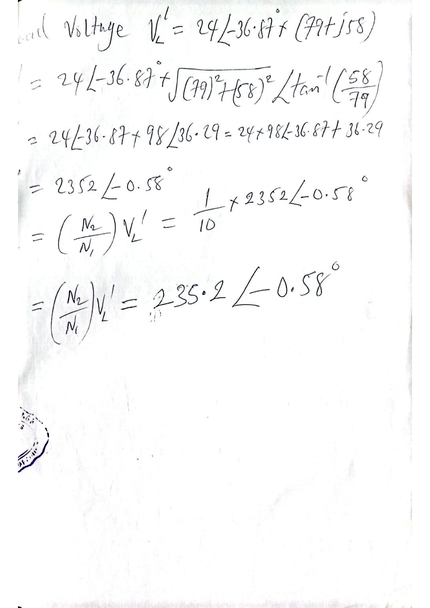 Load Voltage V_L' = 24∠-36.87° × (79+j58)
' = 24∠-36.87° × √(79)²+(58)² ∠tan⁻¹(58/79)
= 24∠-36.87 × 98∠36.29 = 24×98∠-36.87+36.29
' = 2352∠-0.58°
= (N₂/N₁) V_L' = 1/10 × 2352∠-0.58°
= (N₂/N₁) V_L' = 235.2∠-0.58°